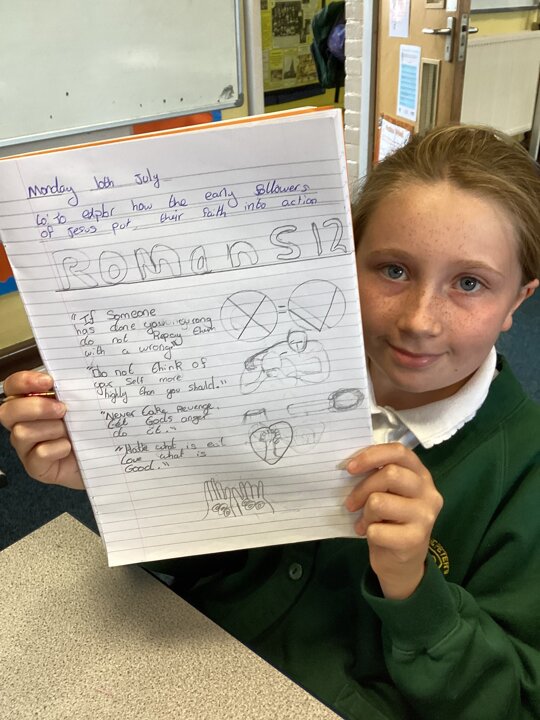 Monday 10th July
LO: to explor how the early followers
of Jesus put their faith into action
ROMANS 12
"If Someone
has done you wrong
do not Repay them
with a wrong"
"Do not think of
your self more
highly than you should."
"Never take revenge.
let Gods anger
do it."
"Hate what is evil
Love what is
Good."